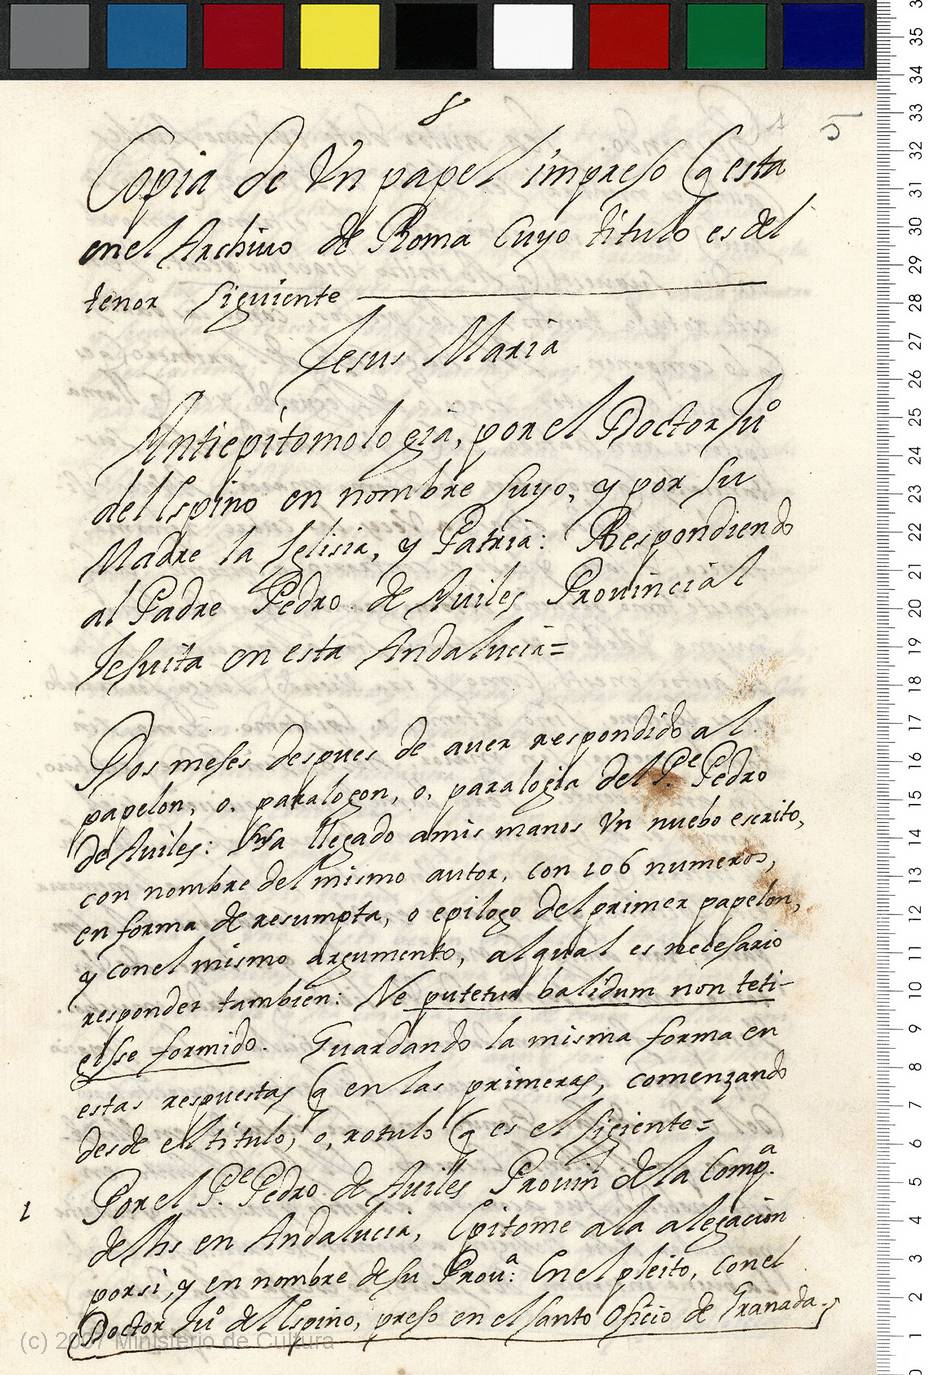 8
5
Copia de Vn papel impreso q esta
en el Archivo de Roma Cuyo titulo es del
tenor siguiente
Jesus Maria
Antiepitomologia, por el Doctor Juº
del Espino en nombre suyo, y por su
Madre la Iglisia, y Patria: Respondiendo
al Padre Pedro de Auiles Prouincial
Jesuita en esta Andalucia=
Dos meses despues de auer respondido al
papelon, o, paralogon, o, paralogia del Pe Pedro
de Auiles: Ha llegado a mis manos Vn nuebo escrito,
con nombre del mismo autor, con 106 numeros,
en forma de resumpta, o epilogo del primer papelon,
y con el mismo argumento, al qual es necesario
responder tambien: Ne putetur balidum non teti-
gisse formido. Guardando la misma forma en
estas respuestas q en las primeras, comenzando
desde el titulo, o, rotulo q es el sigiente=
1 Por el Pe Pedro de Auiles Prouin de la Compª
de Ihs en Andalucia, Epitome a la alegacion
por si, y en nombre de su Prouª: En el pleito, con el
Doctor Juº del Espino, preso en el santo Oficio de Granada.
(c) 2007 Ministerio de Cultura
36
35
34
33
32
31
30
29
28
27
26
25
24
23
22
21
20
19
18
17
16
15
14
13
12
11
10
9
8
7
6
5
4
3
2
1
0